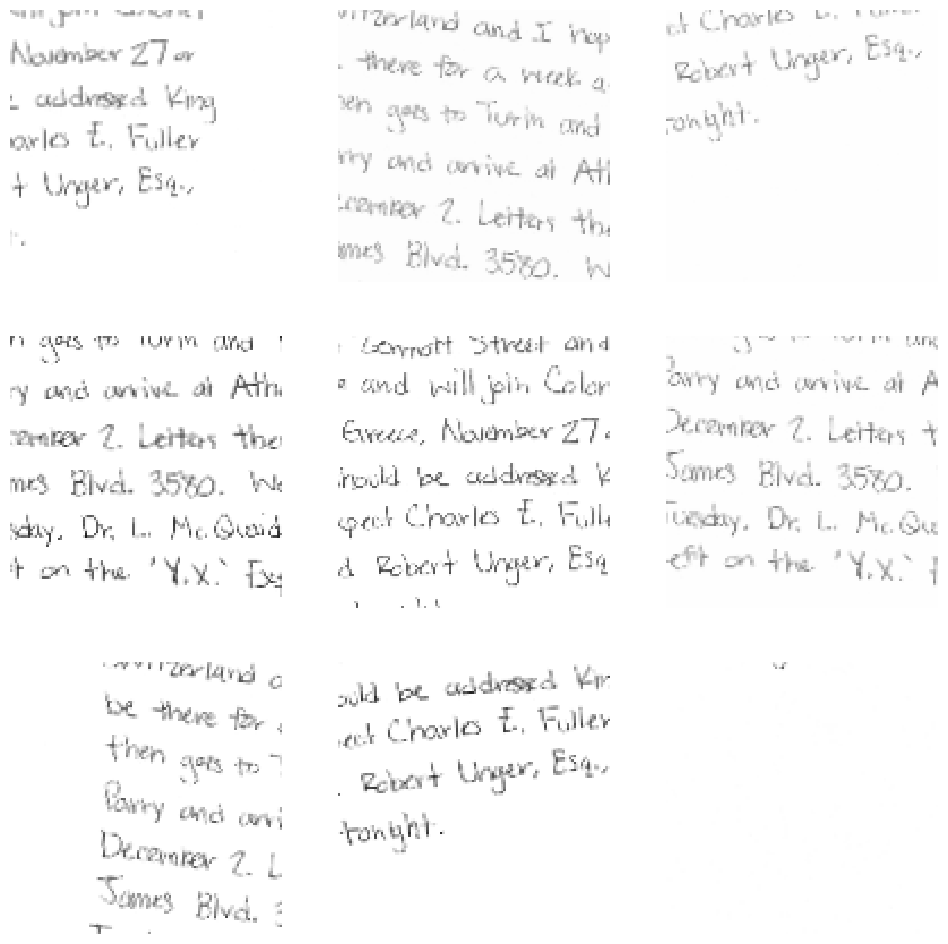 will join
November 27 or
addressed King
arles E. Fuller
t Unger, Esq.,
itzerland and I hop
there for a week a
en goes to Turin and
rry and arrive at Ath
ecember 2. Letters the
ames Blvd. 3580. W
ct Charles E. Fuller
Robert Unger, Esq.,
tonight.
n goes to Turin and
ry and arrive at Athe
cember 2. Letters ther
mes Blvd. 3580. We
sday, Dr. L. McQuaid
t on the "Y.X." Exp
Street and
and will join Colon
Greece, November 27
hould be addressed K
spect Charles E. Fulle
d Robert Unger, Esq
Parry and arrive at A
December 2. Letters t
James Blvd. 3580.
Tuesday, Dr. L. McQua
eft on the "Y.X." E
Switzerland a
be there for
then goes to T
Parry and arri
December 2. L
James Blvd. 3
ould be addressed Kin
ect Charles E. Fuller
Robert Unger, Esq.,
tonight.